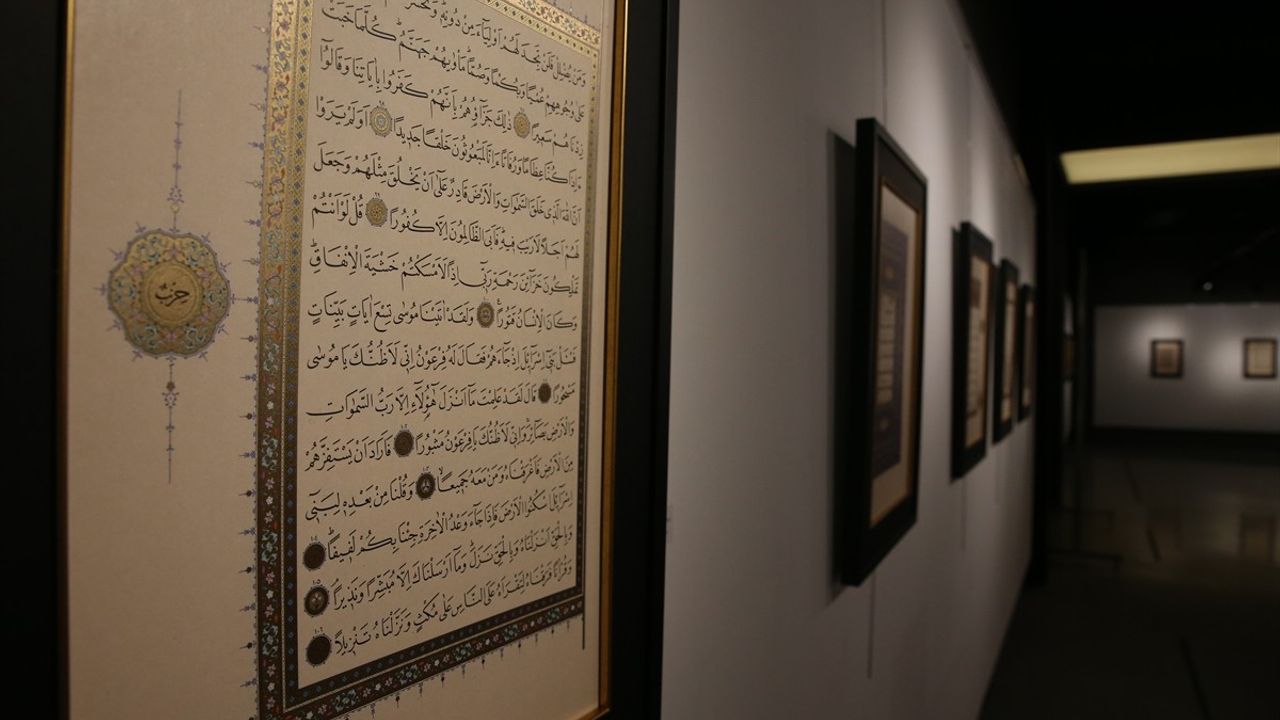 وَمَنْ يُضْلِلْ فَلَنْ تَجِدَ لَهُمْ اَوْلِيَٓاءَ مِنْ دُونِهِ
عَلٰى وُجُوهِهِمْ عُمْيًا وَبُكْمًا وَصُمًّا مَأْوٰيهُمْ جَهَنَّمُ كُلَّمَا خَبَتْ
زِدْنَاهُمْ سَعِيرًا ذٰلِكَ جَزَٓاؤُهُمْ بِاَنَّهُمْ كَفَرُوا بِاٰيَاتِنَا وَقَالُٓوا
ءَاِذَا كُنَّا عِظَامًا وَرُفَاتًا ءَاِنَّا لَمَبْعُوثُونَ خَلْقًا جَدِيدًا اَوَلَمْ يَرَوْا
اَنَّ اللّٰهَ الَّذِي خَلَقَ السَّمٰوَاتِ وَالْاَرْضَ قَادِرٌ عَلٰٓى اَنْ يَخْلُقَ مِثْلَهُمْ وَجَعَلَ
لَهُمْ اَجَلًا لَا رَيْبَ فِيهِ فَاَبَى الظَّالِمُونَ اِلَّا كُفُورًا قُلْ لَوْ اَنْتُمْ
تَمْلِكُونَ خَزَٓائِنَ رَحْمَةِ رَبِّٓي اِذًا لَاَمْسَكْتُمْ خَشْيَةَ الْاِنْفَاقِ
وَكَانَ الْاِنْسَانُ قَتُورًا وَلَقَدْ اٰتَيْنَا مُوسٰى تِسْعَ اٰيَاتٍ بَيِّنَاتٍ
فَسْـَٔلْ بَنِٓي اِسْرَٓائِلَ اِذْ جَٓاءَهُمْ فَقَالَ لَهُ فِرْعَوْنُ اِنِّي لَاَظُنُّكَ يَا مُوسٰى
مَسْحُورًا قَالَ لَقَدْ عَلِمْتَ مَٓا اَنْزَلَ هٰٓؤُلَٓاءِ اِلَّا رَبُّ السَّمٰوَاتِ
وَالْاَرْضِ بَصَٓائِرَ وَاِنِّي لَاَظُنُّكَ يَا فِرْعَوْنُ مَثْبُورًا فَاَرَادَ اَنْ يَسْتَفِزَّهُمْ
مِنَ الْاَرْضِ فَاَغْرَقْنَاهُ وَمَنْ مَعَهُ جَمِيعًا وَقُلْنَا مِنْ بَعْدِهِ لِبَنِٓي
اِسْرَٓائِلَ اسْكُنُوا الْاَرْضَ فَاِذَا جَٓاءَ وَعْدُ الْاٰخِرَةِ جِئْنَا بِكُمْ لَفِيفًا
وَبِالْحَقِّ اَنْزَلْنَاهُ وَبِالْحَقِّ نَزَلَ وَمَٓا اَرْسَلْنَاكَ اِلَّا مُبَشِّرًا وَنَذِيرًا ١٠٥
وَقُرْاٰنًا فَرَقْنَاهُ لِتَقْرَاَهُ عَلَى النَّاسِ عَلٰى مُكْثٍ وَنَزَّلْنَاهُ تَنْزِيلًا ١٠٦
حزب